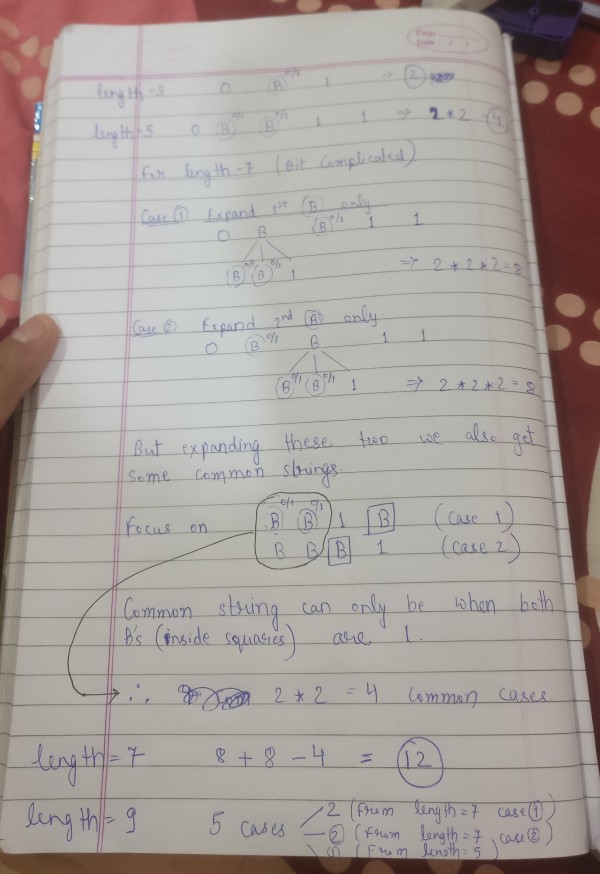 Page
Date
length=3 0 B 0/1 1 => 2
length=5 0 B 0/1 B 0/1 1 1 => 2 * 2 = 4
For length=7 (Bit Complicated)
Case ① Expand 1st B only
0 B B 0/1 1 1
B 0/1 B 0/1 1 => 2 * 2 * 2 = 8
Case ② Expand 2nd B only.
0 B 0/1 B 1 1
B 0/1 B 0/1 1 => 2 * 2 * 2 = 8
But expanding these two we also get
some common strings.
Focus on B 0/1 B 0/1 1 B (Case 1)
B B B 1 (Case 2)
Common string can only be when both
B's (inside squares) are 1.
∴ 2 * 2 = 4 common cases.
length = 7 8 + 8 - 4 = 12
length = 9 5 cases 2 (From length=7 case ①)
② (From length=7 case ②)
① (From length=5)